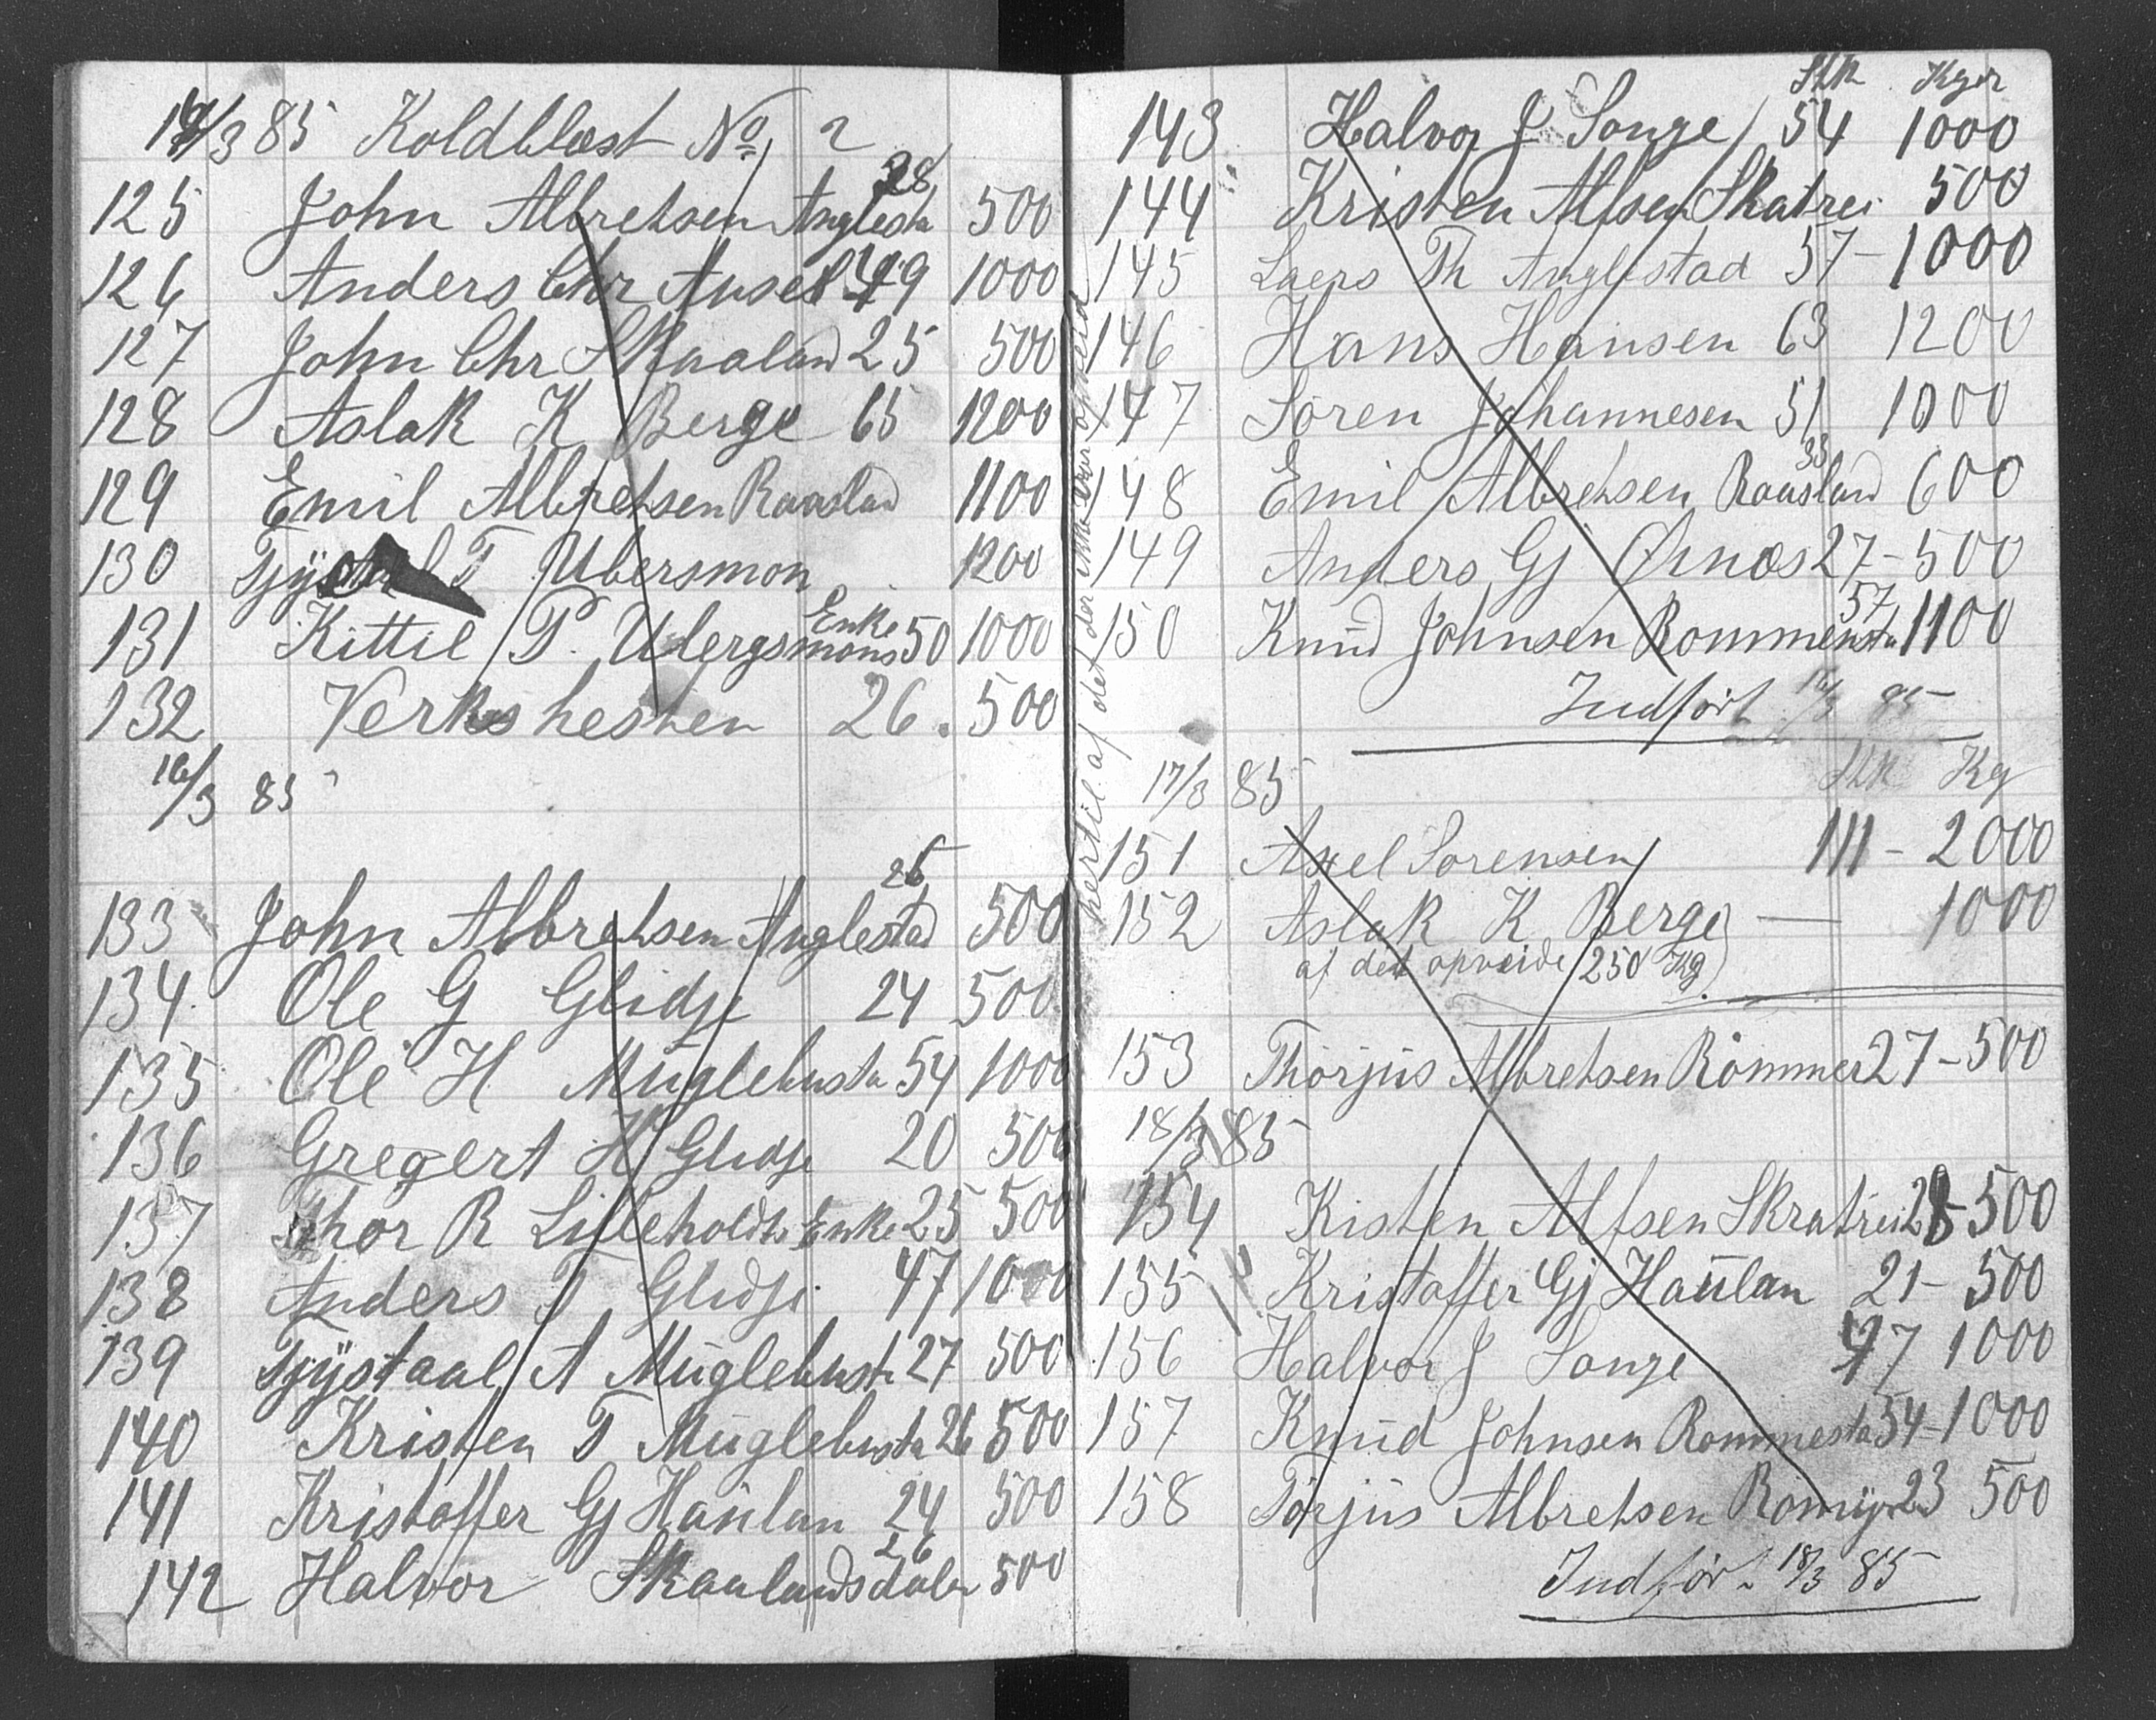 /3 85 Koldblæst No 2
125 John Albretsen Anglesta 28 500
126 Anders Chr Auset 49 1000
127 John Chr Skaaland 25 500
128 Aslak K Berge 65 1200
129 Emil Albretsen Raaslad 1100
130 T Ubersmon 1200
131 Kittil P. Ubergsmons Enke 50 1000
132 Verkshesten 26. 500
16/3 85
133 John Albretsen Anglestad 26 500
134. Ole G Glidje 24 500
135 Ole H Müglebusta 54 1000
136 Gregert H Glidje 20 500
137 Thor R Lilleholdts Enke 25 500
138 Anders T Glidje 47 1000
139 Tjÿstaal A Müglebust 27 500
140 Kristen T Müglebusta 26 500
141 Kristoffer Gj Haülan 24 500
142 Halvor Skaalandsdalen 26 500
hertil af det der ikke var opveid
Stk Kger
143 Halvor J Songe 54 1000
144 Kristen Alfsen Skatrei 500
145 Laers Th Anglestad 57 - 1000
146 Hans Hansen 63 1200
147 Sören Johannesen 51 1000
148 Emil Albretsen Raaslan 33 600
149 Anders Gj Ørnæs 27 - 500
150 Knüd Johnsen Rommensta 57 1100
Indført 16/3 85
Stk Kg
17/3 85
151 Axel Sorensen 111 - 2000
152 Aslak K Berge — 1000
af det opveide 250 Kg
153 Thorjüs Albretsen Rommer 27 - 500
18/3 85
154 Kisten Alfsen Skratrei 28 - 500
155 Kristoffer Gj Haülan 21 - 500
156 Halvor J Songe 47 1000
157 Knüd Johnsen Rommesta 54 - 1000
158 Torjüs Albretsen 23 500
Indført 18/3 85